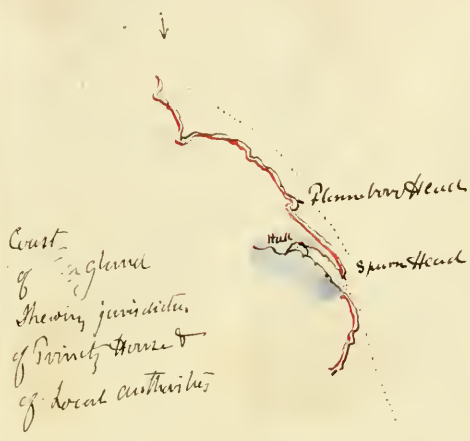 Flamboro Head
Hull
Spurn Head
Coast
of England
Shewing jurisdiction
of Trinity House &
of Local authorities